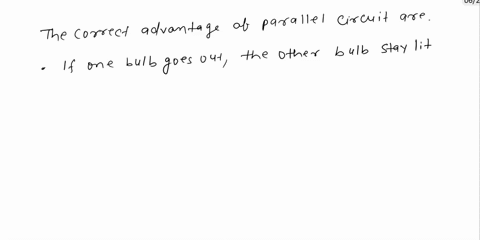 The correct advantage of parallel circuit are.
• If one bulb goes out, the other bulb stay lit